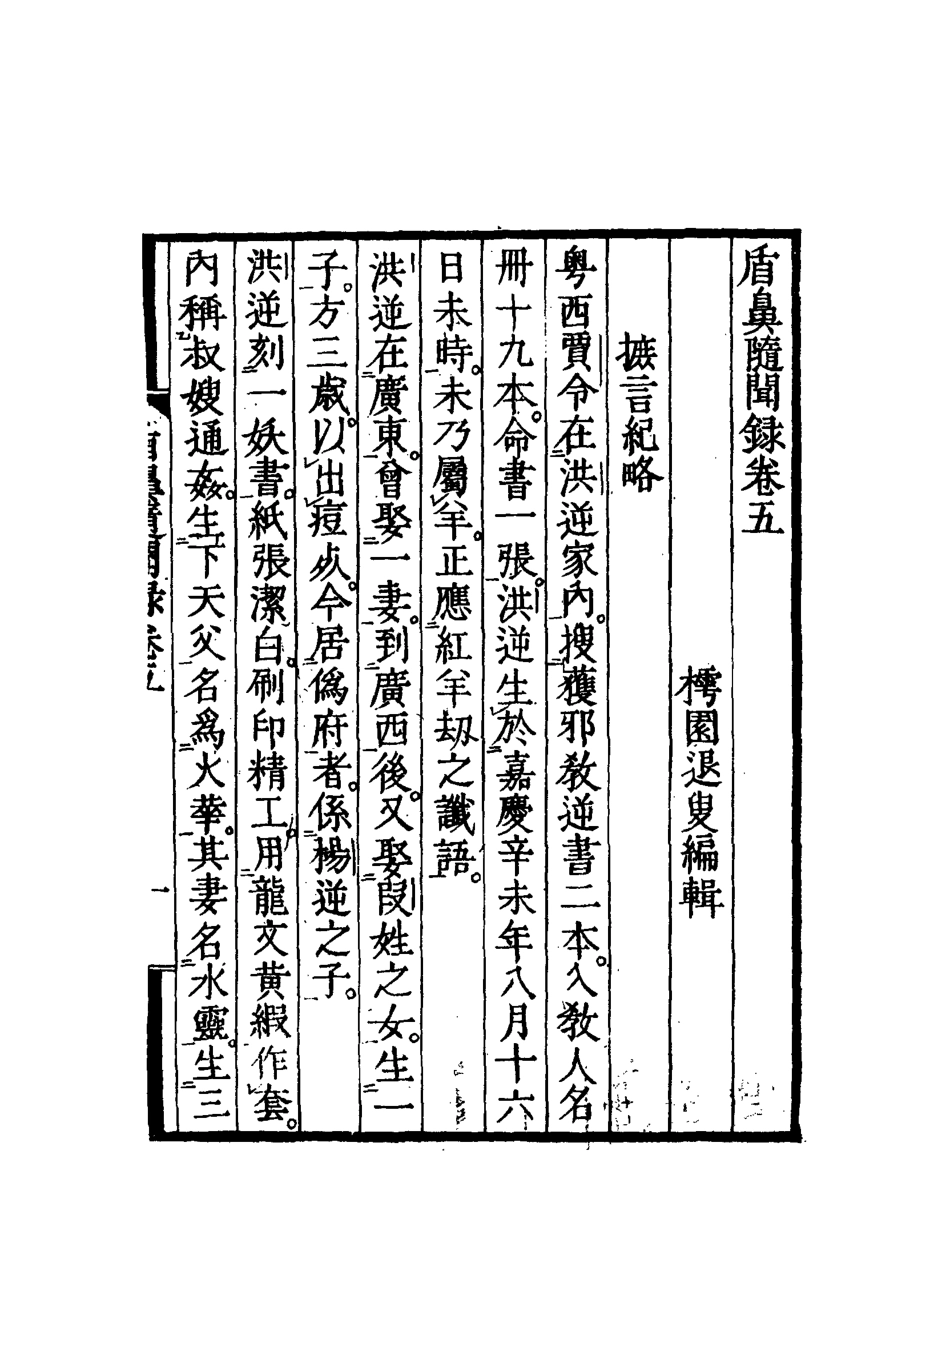 盾鼻隨聞録卷五
樗園退叟編輯
摭言紀略
粵西賈令在洪逆家內。搜獲邪教逆書二本。入教人名
冊十九本。命書一張。洪逆生於嘉慶辛未年八月十六
日未時。未乃屬羊。正應紅羊劫之讖語。
洪逆在廣東。曾娶一妻。到廣西後。又娶段姓之女。生一
子。方三歳。以出痘死。今居僞府者。係楊逆之子。
洪逆刻一妖書。紙張潔白。刷印精工。用龍文黃緞作套。
內稱叔嫂通姦。生下天父名爲火華。其妻名水靈。生三
盾鼻隨聞録卷五
一